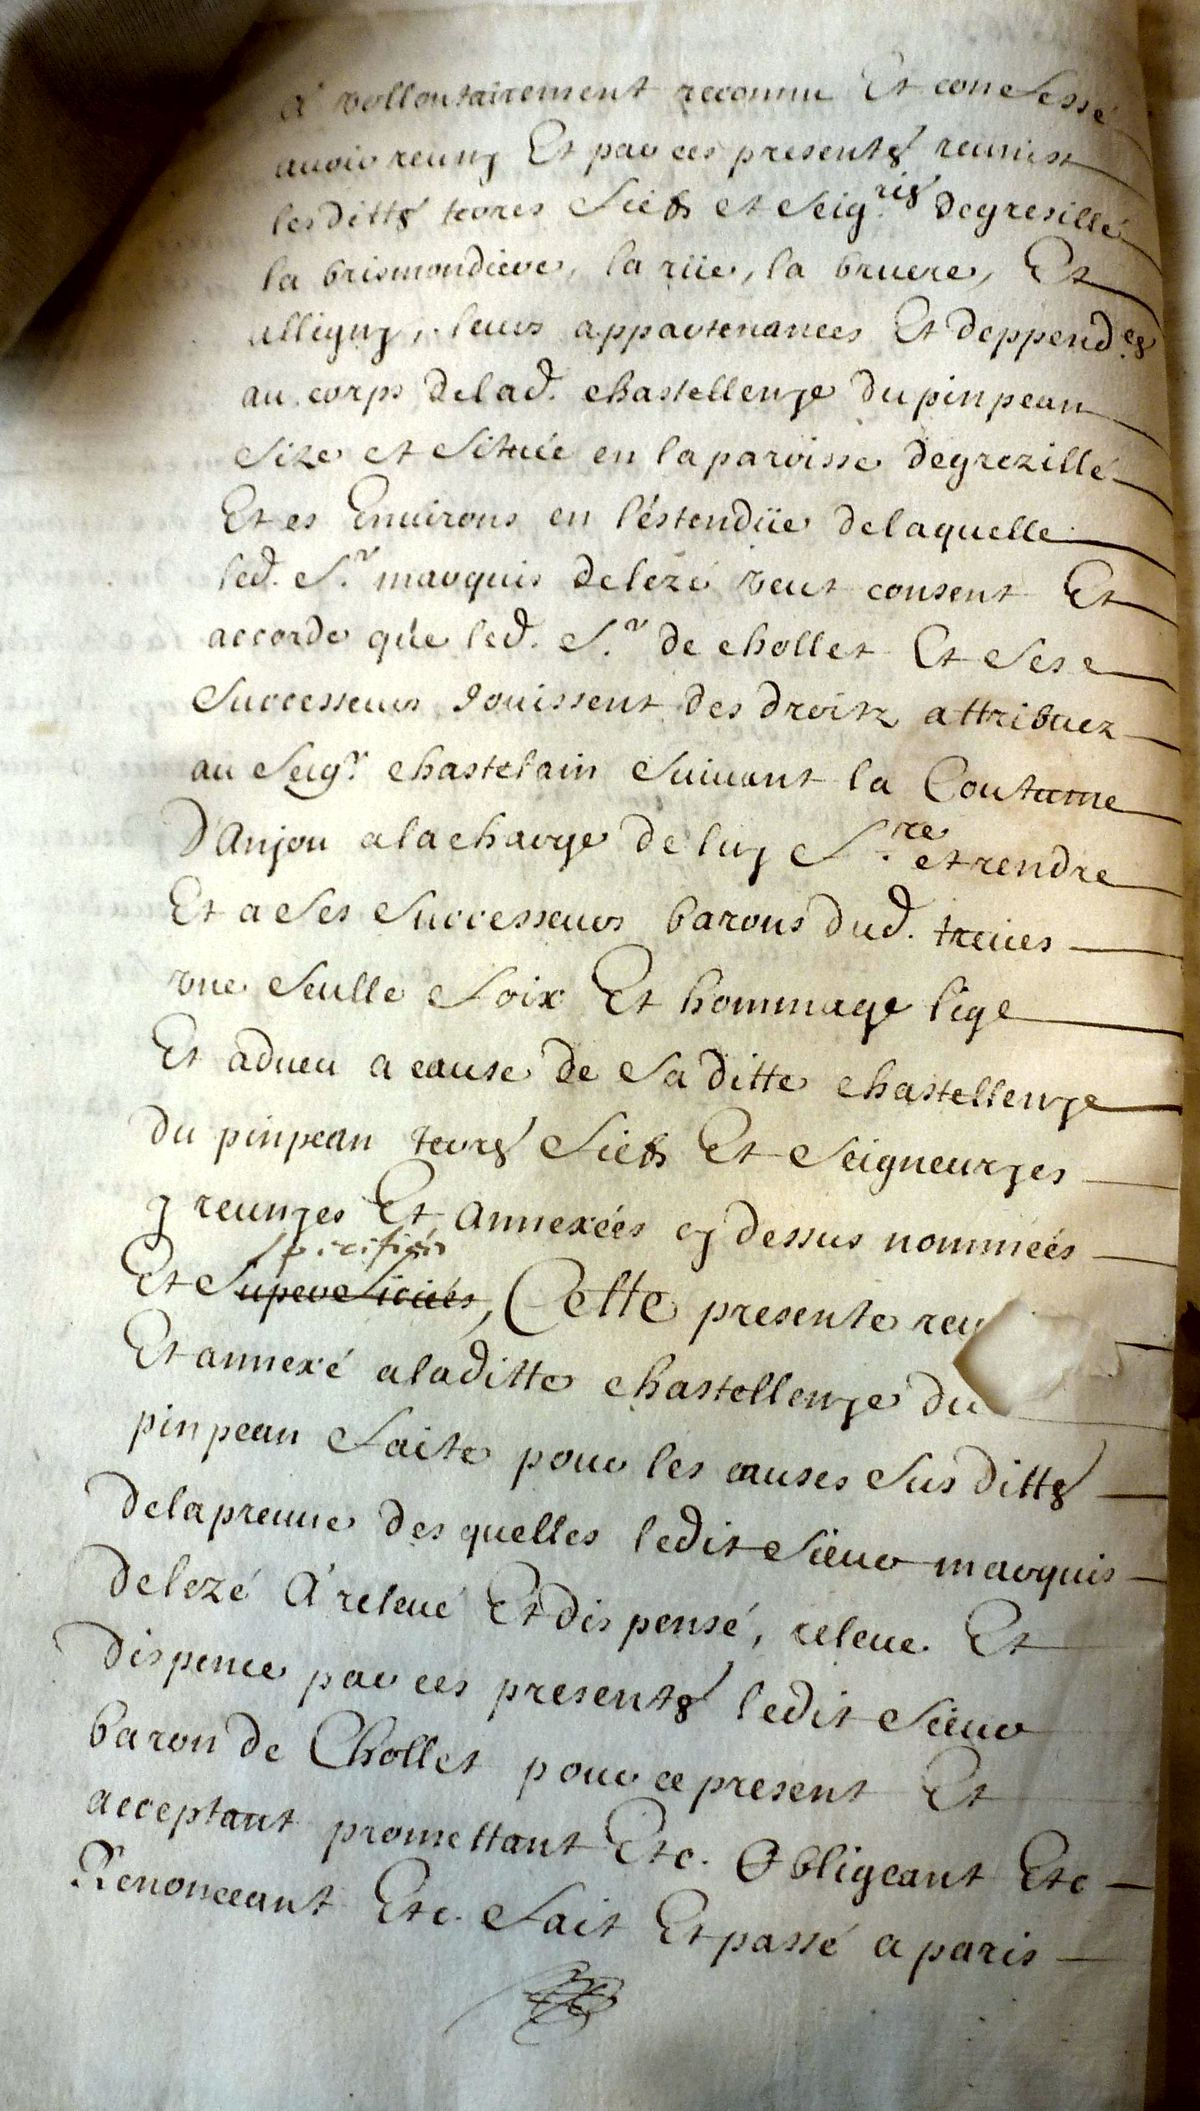 A vollontairement reconnu Et confessé
avoir reuny Et par ces presentes reunist
lesdittes terres fiefs et seig.ries degresillé
la brismondiere, la rüe, la bruere, Et
alligny, leurs appartenances Et deppend.es
au corps delad. chastellenye du pinpean
size et située en la paroisse degrezillé
Et es Enuirons en l'éstendüe delaquelle
led. S.r marquis delezé veut consent Et
accorde que led. S.r de chollet Et ses
successeurs Jouissent des droitz attribuez
au seig.r chastelain suiuant la Coutume
D'Anjou a la charge de luy f.re et rendre
Et a ses successeurs barons dud. treues
vne seulle foix Et hommage lige
Et adueu a cause de sa ditte chastellenye
du pinpean terres fiefs Et seigneuryes
y reunyes Et annexées cy dessus nommées
specifiés
Et superficiés, Cette presente reu
Et annexé a laditte chastellenye du
pinpean faite pour les causes susdittes
delapreuue desquelles ledit sieur marquis
delezé A releué Et dispensé, releue Et
dispence par ces presentes ledit sieur
baron de Chollet pour ce present Et
acceptant promettant Etc. Obligeant Etc
Renonceant Etc. fait Et passé a paris